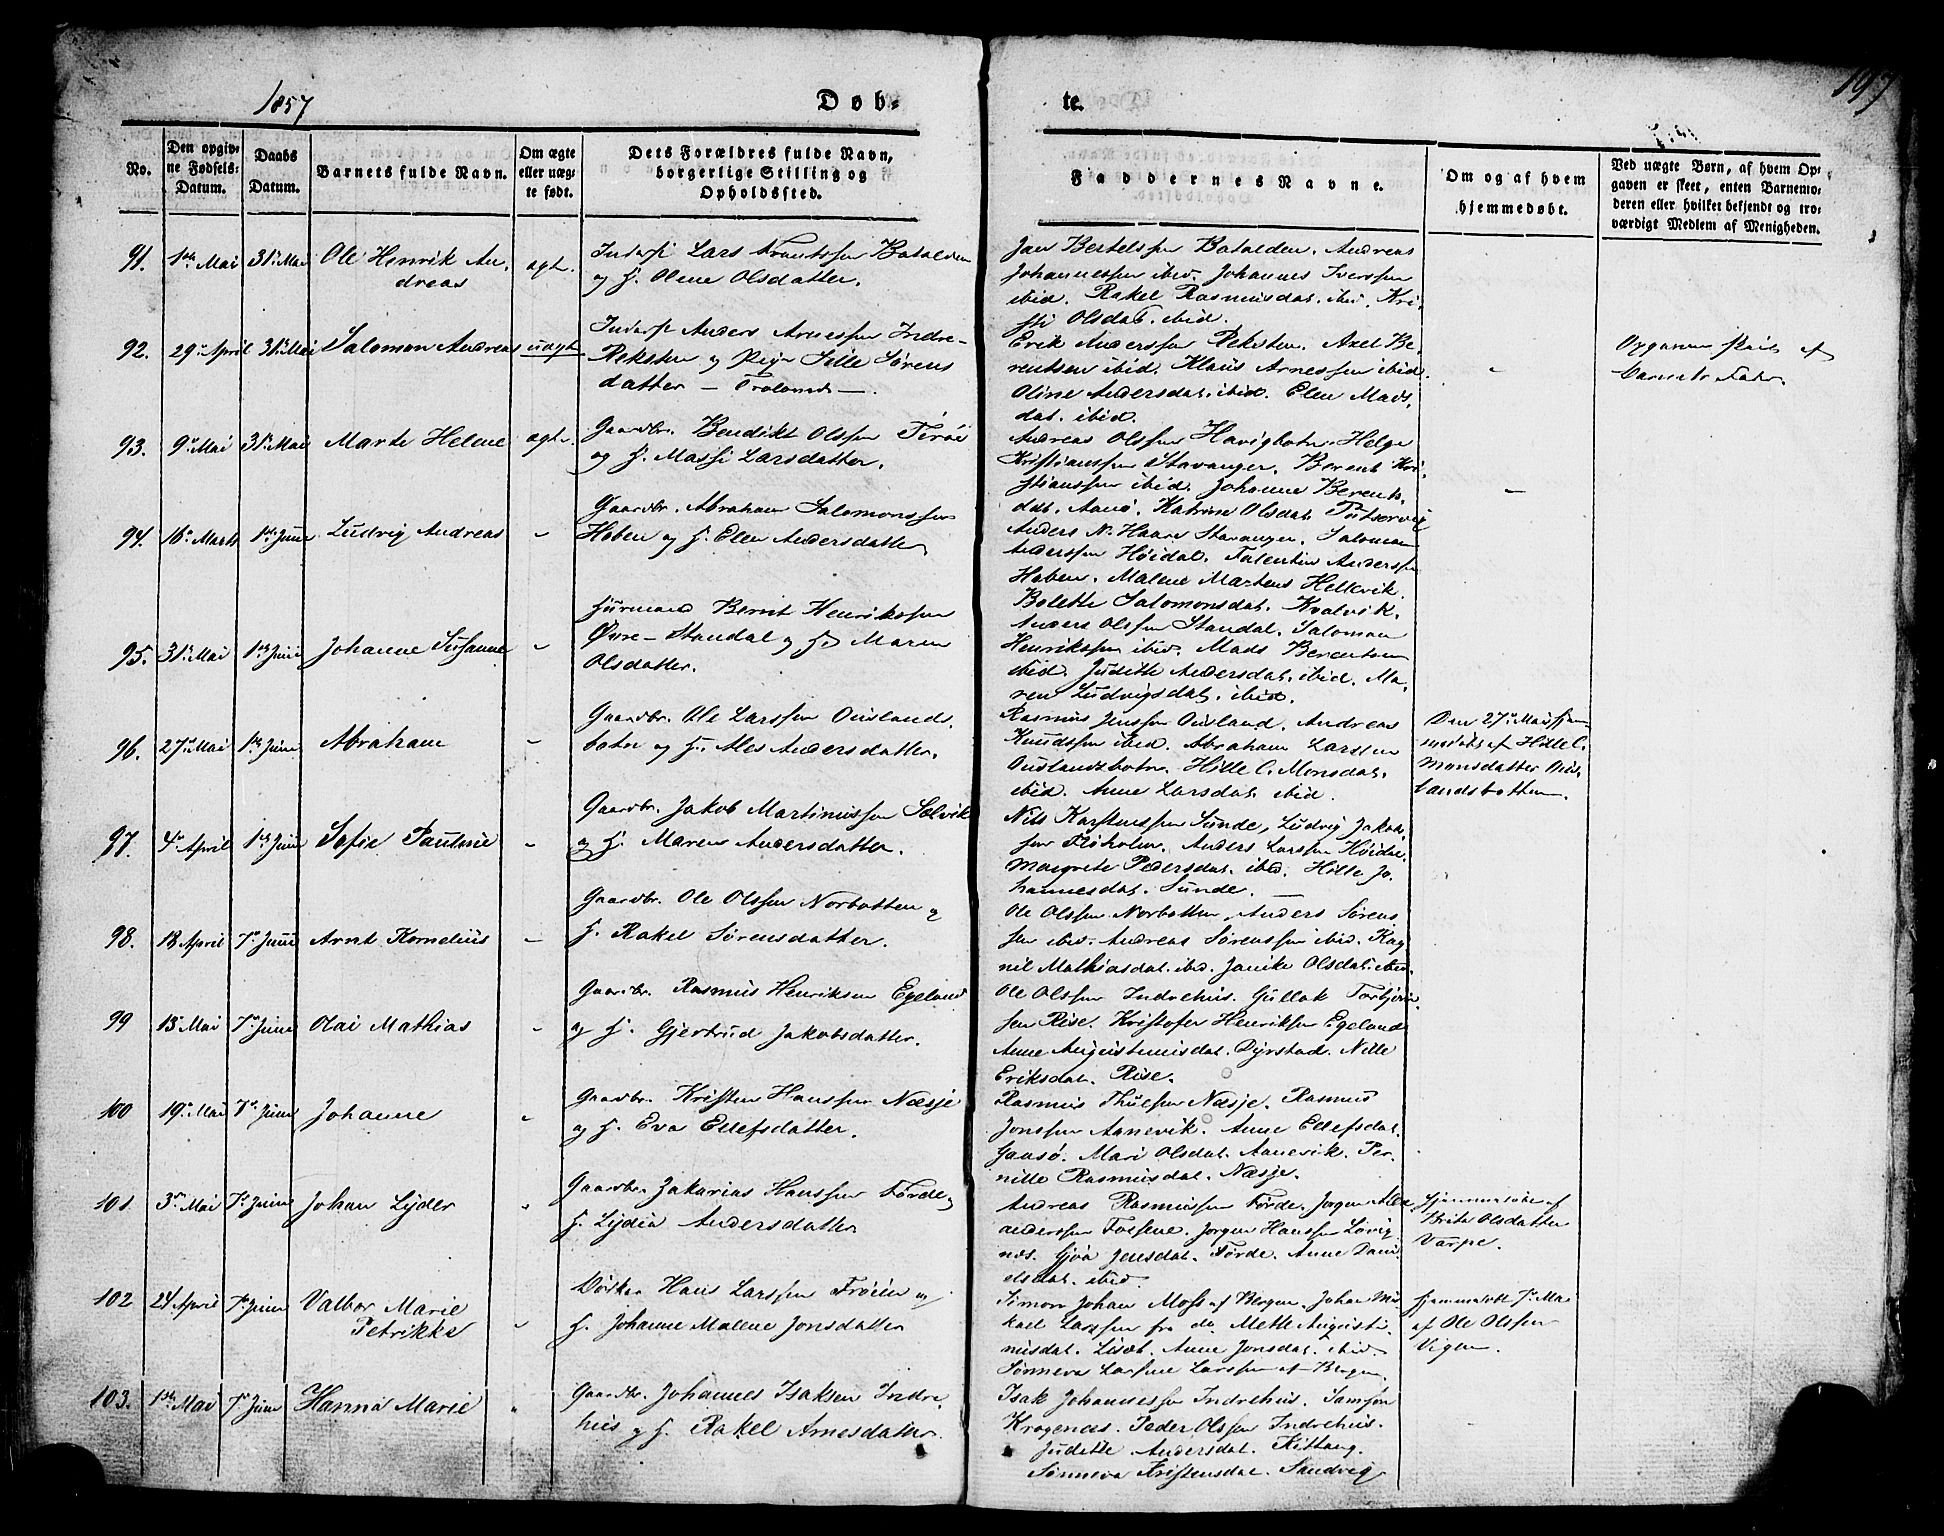 1857
Døb-
te.
197
No.
Den opgiv-
ne Fødsels-
Datum.
Daabs
Datum.
Barnets fulde Navn.
Om ægte
eller uæg-
te født.
Dets Forældres fulde Navn,
borgerlige Stilling og
Opholdssted.
Faddernes Navne.
Om og af hvem
hjemmedøbt.
Ved uægte Børn, af hvem Op-
gaven er skeet, enten Barnemo-
deren eller hvilket bekjendt og tro-
værdigt Medlem af Menigheden.
91. 1ste Mai 31te Mai Ole Henrik An-
dreas
ægt.
Inders. Lars Frantssen Batalden
og H. Olene Olsdatter.
Jan Bertelssen Batalden. Andreas
Johannessen ibid. Johannes Iverssen
ibid. Rakel Rasmusdat. ibid. Kri-
sti Olsdat. ibid.
92. 29de April 31te Mai Salomon Andreas uægt.
Inders. Anders Arnessen Indre-
Reksten og Pige Sille Sørens
datter
Erik Anderssen Reksten. Axel Be-
rentsen ibid. Klaus Arnessen ibid.
Oline Andersdat. ibid. Elen Mads-
dat. ibid.
-
Opgaven skeet af
Barnets Fader.
93. 9de Mai 31te Mai Marte Helene ægte
Gaardbr. Bendikt Olssen Terøe
og H. Massi Larsdatter.
Andreas Olssen Havigbotn. Helge
Kristianssen Stavanger. Berent Kri-
stianssen ibid. Johanne Berents-
dat. Aanø. Katrine Olsdat.
-
94. 16de Marts 1ste Juni Ludvig Andreas -
Gaardbr. Abraham Salomonssen
Hoben og H. Elen Andersdatter
Anders N. Haare Stavanger. Salomon
Anderssen Høidal. Falentin Anderssen
Hoben. Malene Martens Hellevik.
Bolette Salomonsdat. Kvalvik.
95. 31te Mai 1ste Juni Johanne Susanne -
Huusmand Bernt Henrikssen
Øvre-Standal og H. Maren
Olsdatter.
Anders Olssen Standal. Salomon
Henrikssen ibid. Mads Berentsen
ibid. Judithe Andersdat. ibid. Ma-
ren Ludvigsdat. ibid.
96. 27de Mai 1ste Juni Abraham -
Gaardbr. Ole Larssen Ouslands-
botn og H. Ales Andersdatter.
Rasmus Jenssen Ousland. Andreas
Knudssen ibid. Abraham Larssen
Ouslandsbotn. Hille C. Monsdat.
ibid. Anne Larsdat. ibid.
Den 27de Mai hjem-
medøbt af Hille C.
Monsdatter Ous-
landsbotten.
97. 4de April 1ste Juni Sofie Pauline -
Gaardbr. Jakob Martinussen Sælvik
og H. Maren Andersdatter.
Nils Karstenssen Sunde, Ludvig Jakob-
sen Fløholm. Anders Larssen Høidal.
Margrete Pedersdat. ibid. Hille Jo-
hannesdat. Sunde.
98. 18 April 7de Juni Arnt Kornelius -
Gaardbr. Ole Olssen Norbotten og
H. Rakel Sørensdatter.
Ole Olssen Norbotten, Anders Sørens
sen ibid. Andreas Sørenssen ibid. Rag
nil Mathiasdat. ibid. Janike Olsdat. ibid.
99 13de Mai 7de Juni Olai Mathias -
Gaardbr. Rasmus Henriksen Egeland
og H. Gjertrud Jakobsdatter.
Ole Olssen Indrehus. Gullak Torbjørn-
sen Rise. Kristofer Henriksen Egeland
Anne Augustinusdat. Dyrstad. Nille
Eriksdat. Rise.
100 19de Mai 7de Juni Johanne -
Gaardbr. Kristen Hanssen Næsje
og H. Eva Ellefsdatter.
Rasmus Thuesen Næsje. Rasmus
Jonssen Aanevik. Anne Ellefsdat.
Gansø. Mari Olsdat. Aanevik. Per-
nille Rasmusdat. Næsje.
101 3de Mai 7de Juni Johan Lyder -
Gaardbr. Zakarias Hanssen Førde og
H. Lydia Andersdatter
Andreas Rasmussen Førde. Jørgen Alex
anderssen Fossene. Jørgen Hanssen Løvig
nes. Gjøa Jensdat. Førde. Anne Dani-
elsdat. ibid.
Hjemmedøbt af
Brite Olsdatter
Varpe.
102 24 April 7de Juni Valbor Marie
Petrikke -
Bøker Hans Larssen Frøien og
H. Johanne Malene Jonsdatter
Simon Johan Moss af Bergen. Johan Mi-
kael Larssen fra do. Mette Augusti-
nusdat. Liset. Anne Jonsdat. ibid.
Sønneva Larsine Larssen af Bergen.
Hjemmedøbt 7de Mai
af Ole Olssen
Vigen.
103. 1ste Mai 7de Juni Hanna Marie -
Gaardbr. Johannes Isaksen Indre-
hus og H. Rakel Arnesdatter.
Isak Johannessen Indrehus. Samson
Krogenæs. Peder Olssen Indrehus.
Judithe Andersdat. Kittang.
Sønneva Kristensdat. Sandvig